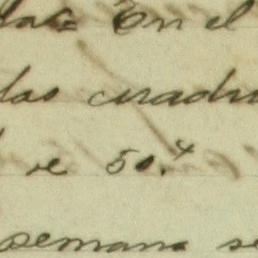 las= En el
las cuadr
e 50.4
semana se